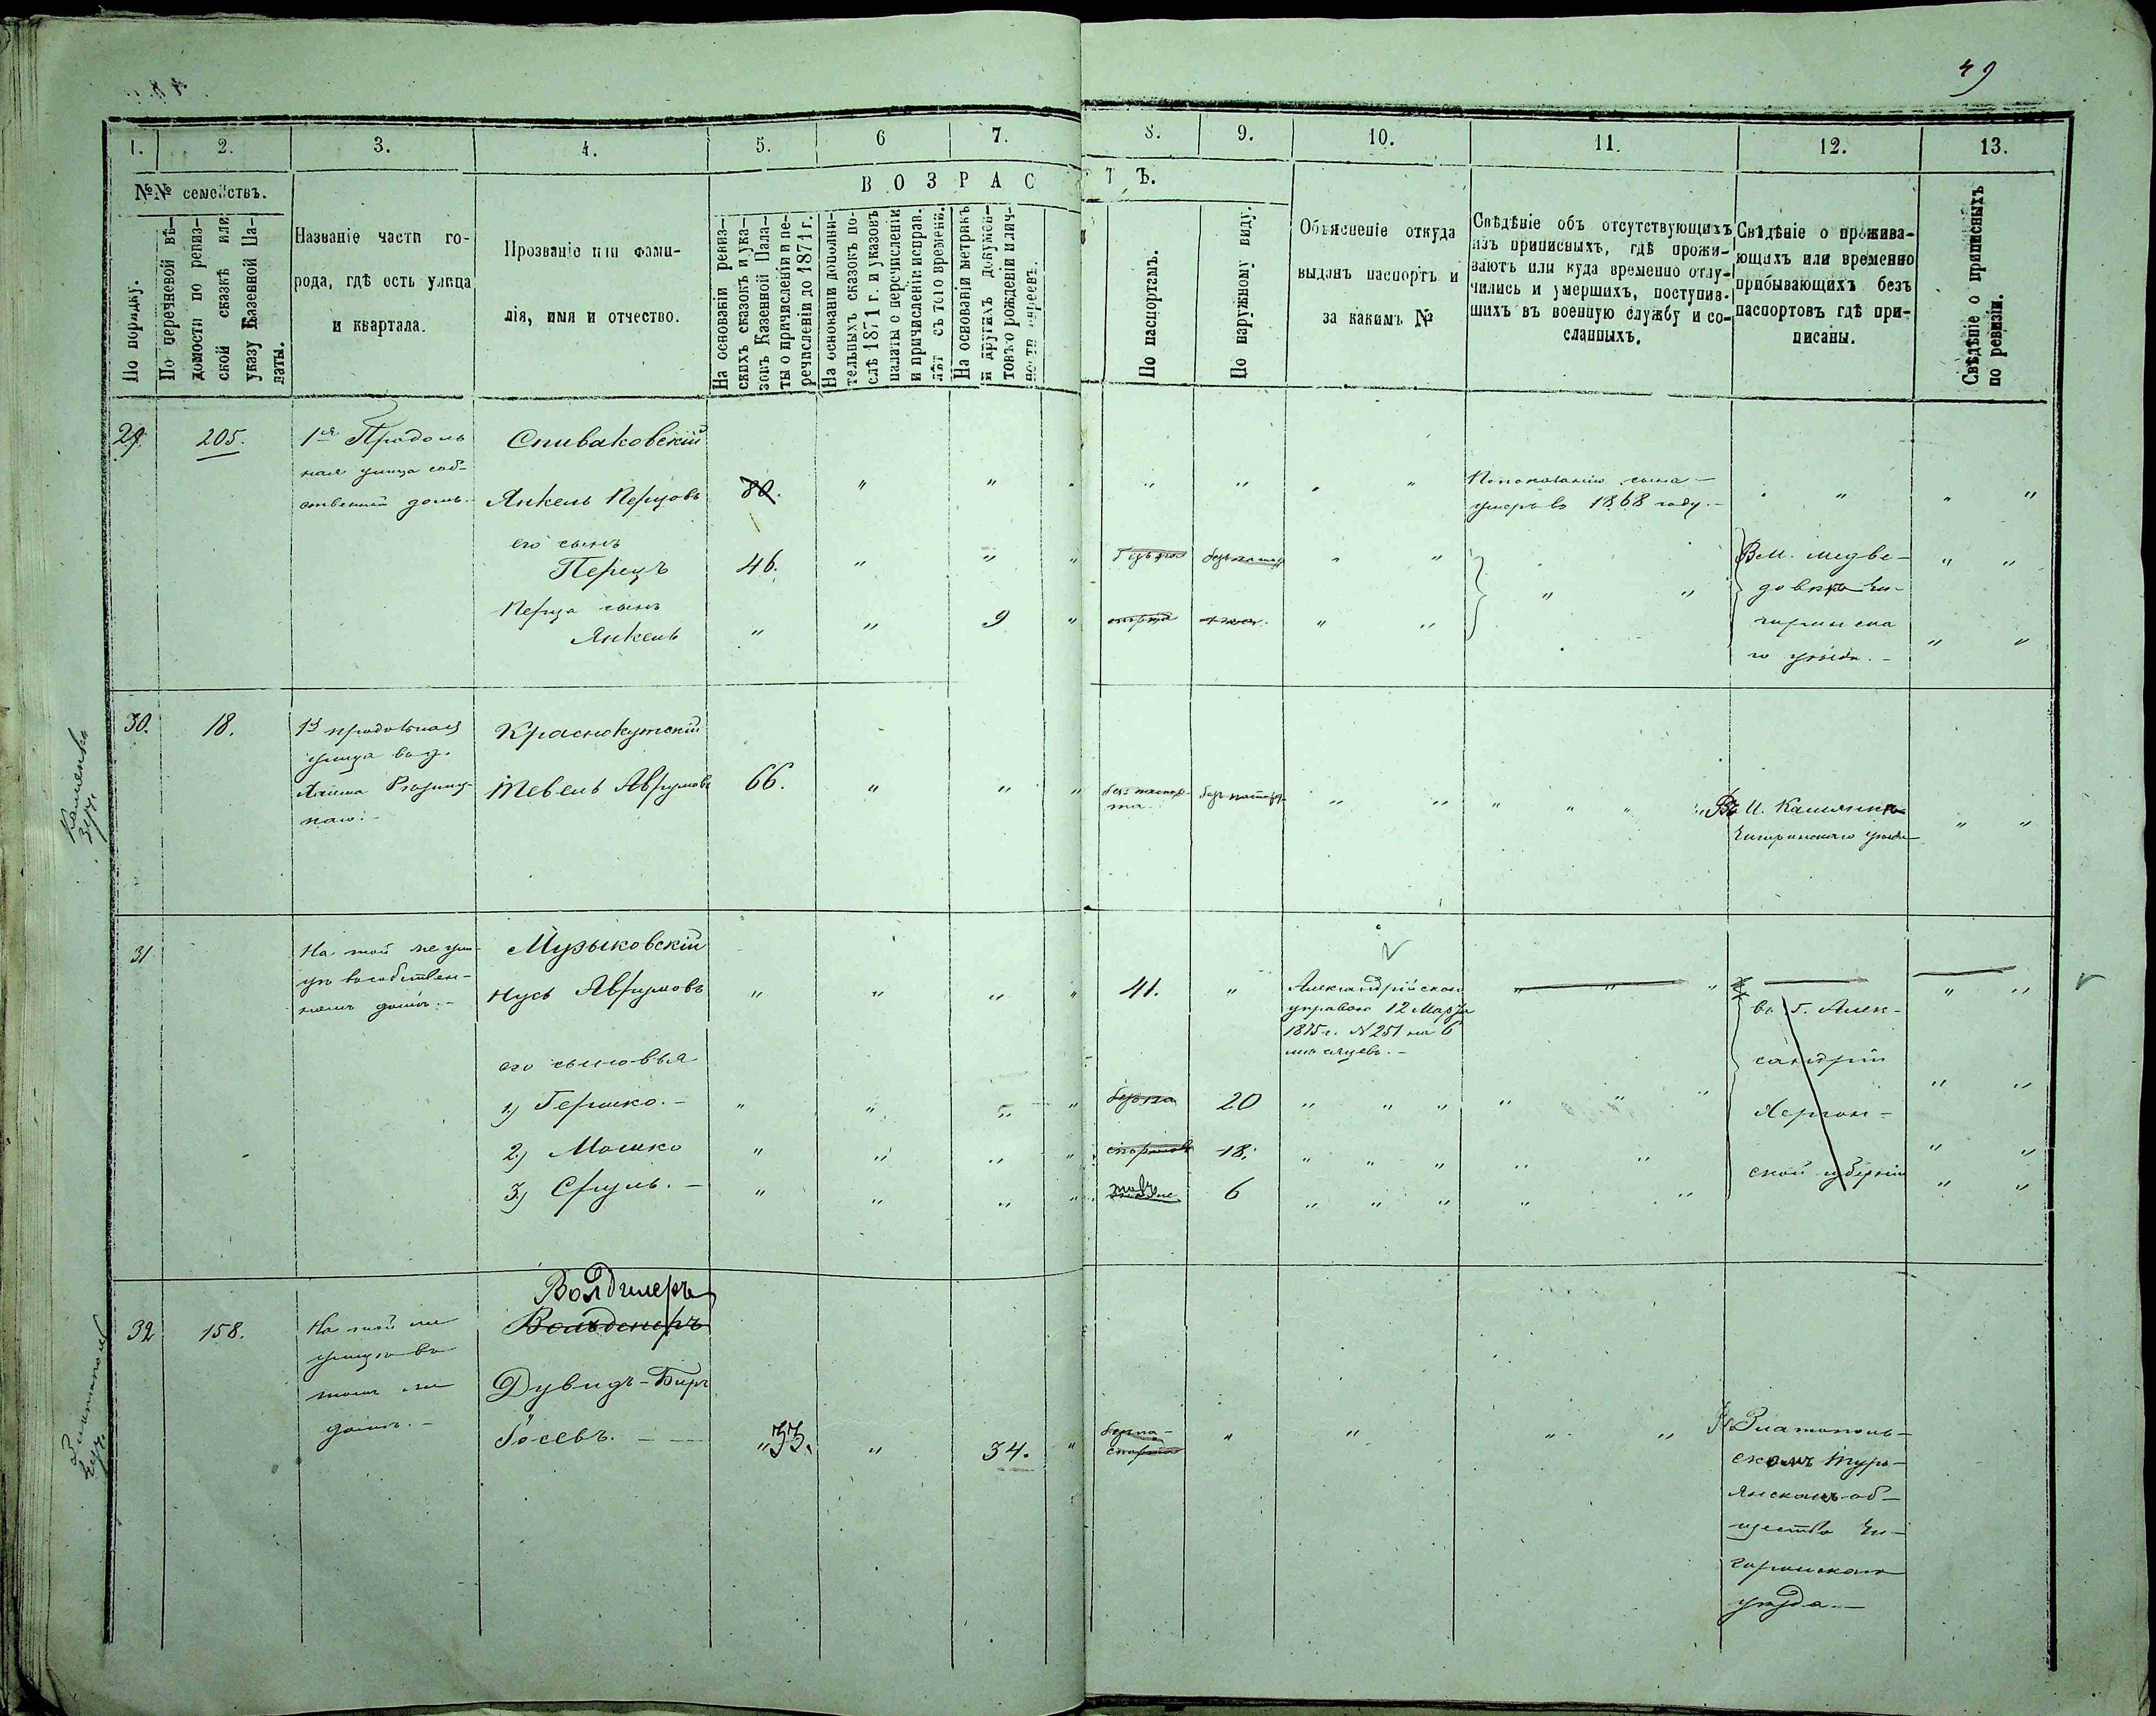 49
1.
2.
3.
4.
5.
6
7.
8.
9.
10.
11.
12.
13.
№№ семействъ.
ВОЗРАСТЪ.
По порядку.
По перечневой вѣ-
домости по ревиз-
ской сказкѣ или
указу Казенной Па-
латы.
Названіе части го-
рода, гдѣ есть улица
и квартала.
Прозваніе или фами-
лія, имя и отчество.
На основаніи ревиз-
скихъ сказокъ и ука-
зовъ Казенной Пала-
ты о причисленіи и пе-
речисленіи до 1871 г.
На основаніи дополни-
тельныхъ сказокъ по-
слѣ 1871 г. и указовъ
палаты о перечисленіи
и причисленіи исправ.
лѣт съ того времени.
На основаніи метрикъ
и другихъ докумен-
товъ о рожденіи и лич-
По паспортамъ.
По наружному виду.
Объясненіе откуда
выданъ паспортъ и
за какимъ №
Свѣдѣніе объ отсутствующихъ
изъ приписныхъ, гдѣ прожи-
ваютъ или куда временно отлу-
чились и умершихъ, поступив-
шихъ въ военную службу и со-
сланныхъ.
Свѣдѣніе о прожива-
ющихъ или временно
прибывающихъ безъ
паспортовъ гдѣ при-
писаны.
Свѣдѣніе о приписныхъ
по ревизіи.
29
205.
1я Продоль
ная улица соб-
ственный домъ.
Спиваковскій
Янкель Перцовъ
80.
По показанію сына
умеръ въ 1868 году.
его сынъ
Перецъ
46.
В м. Медве-
довкѣ Чи-
гиринска
го уѣзда.
Перца сынъ
Янкель
9
Каменка
30.
18.
1я продольная
улица въ д.
Краснокутскій
Тевель Аврумовъ
66.
без паспор-
та
безъ паспор
Въ м. Каменкѣ
Чигиринскаго уѣзда
31
На той же ули
цѣ въ собствен-
номъ домѣ.
Музыковскій
Нусь Аврумовъ
41.
Александрійскою
управою 12 Марта
1875 г. № 251 на 6
мѣсяцевъ.
въ г. Алек-
сандріи
Херсон-
ской губерніи
его сыновья
1) Гершко.
20
2) Мошко
18.
3) Сруль.
6
Златополь
32
158.
На той же
улицѣ въ
томъ же
домѣ.
Волдинеръ
Дувидъ-Беръ
Іосевъ.
33.
34.
безпа-
спорта
Златополь-
скомъ Турь-
янскомъ об-
ществѣ Чи-
гиринскаго
уѣзда